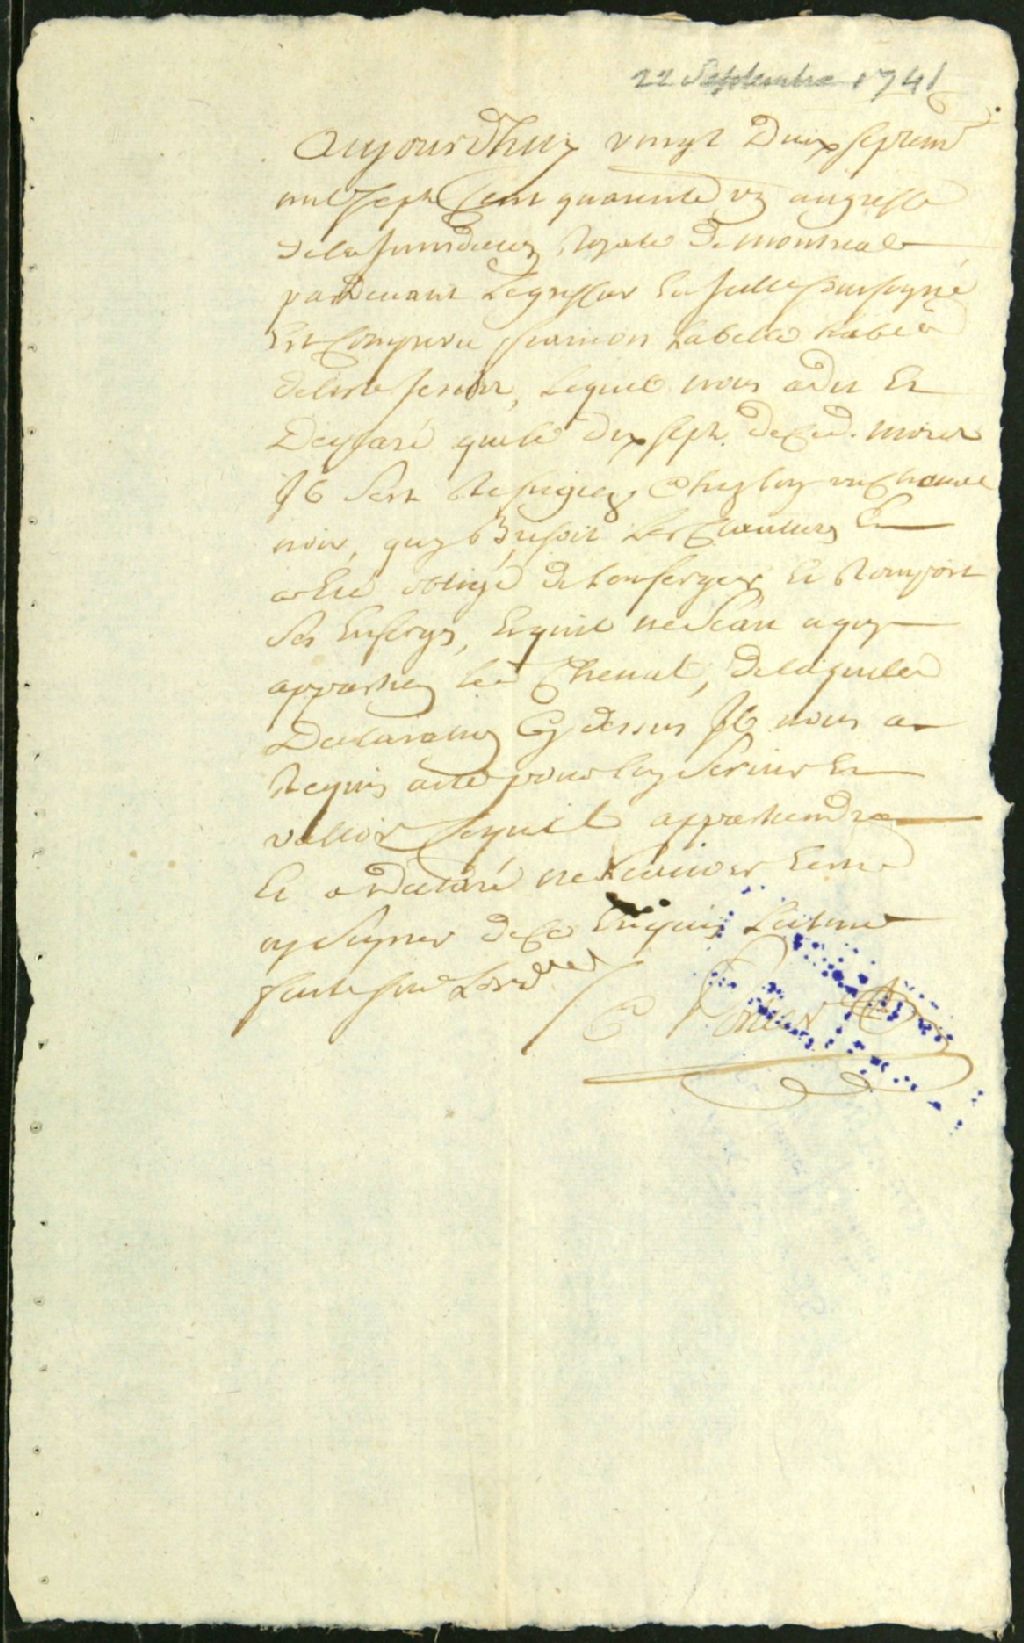 22 Septembre 1741
Aujourdhuy vingt Deux septem
mil sept Cent quarente un au greffe
De la Jurisdiction Royale De Montreal
par Devant Le greffier En Icelle soussigné
Est Comparu Labelle habit
De lisle Jesus, Lequel nous a dit Et
Declaré que le dix sept de Ce mois
Il Sest Refugié Chez luy un Cheval
noir, quy Les Et
a Eté obligé De Et
Ses Et quil ne Scait a quy
appartien led Cheval, De laquelle
Declaration Cy dessus Il nous a
Requis acte pour luy Servir Et
valloir Ce quil appartiendra
Et a Declaré ne Scavoir Ecrire
ny Signer De Ce Enquis Lecture
faite suiv Lord
C Porlier